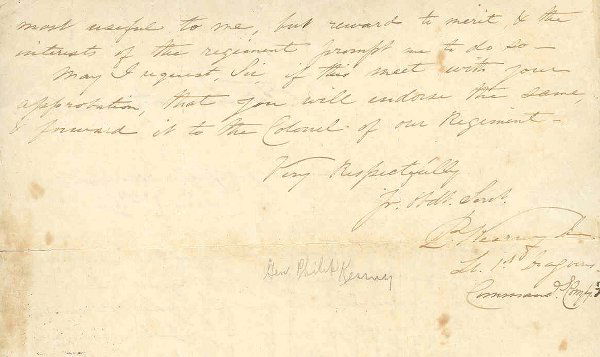 most useful to me, but reward to merit, & the
interests of the regiment prompt me to do so —
May I request, Sir if this meet with your
approbation, that you will endorse the same,
& forward it to the Colonel of our Regiment —
Very Respectfully
Yr. Obdt. Servt.
P. Kearny Jr.
Lt. 1st Dragoons
Command. Comp.
Gen Philip Kearney